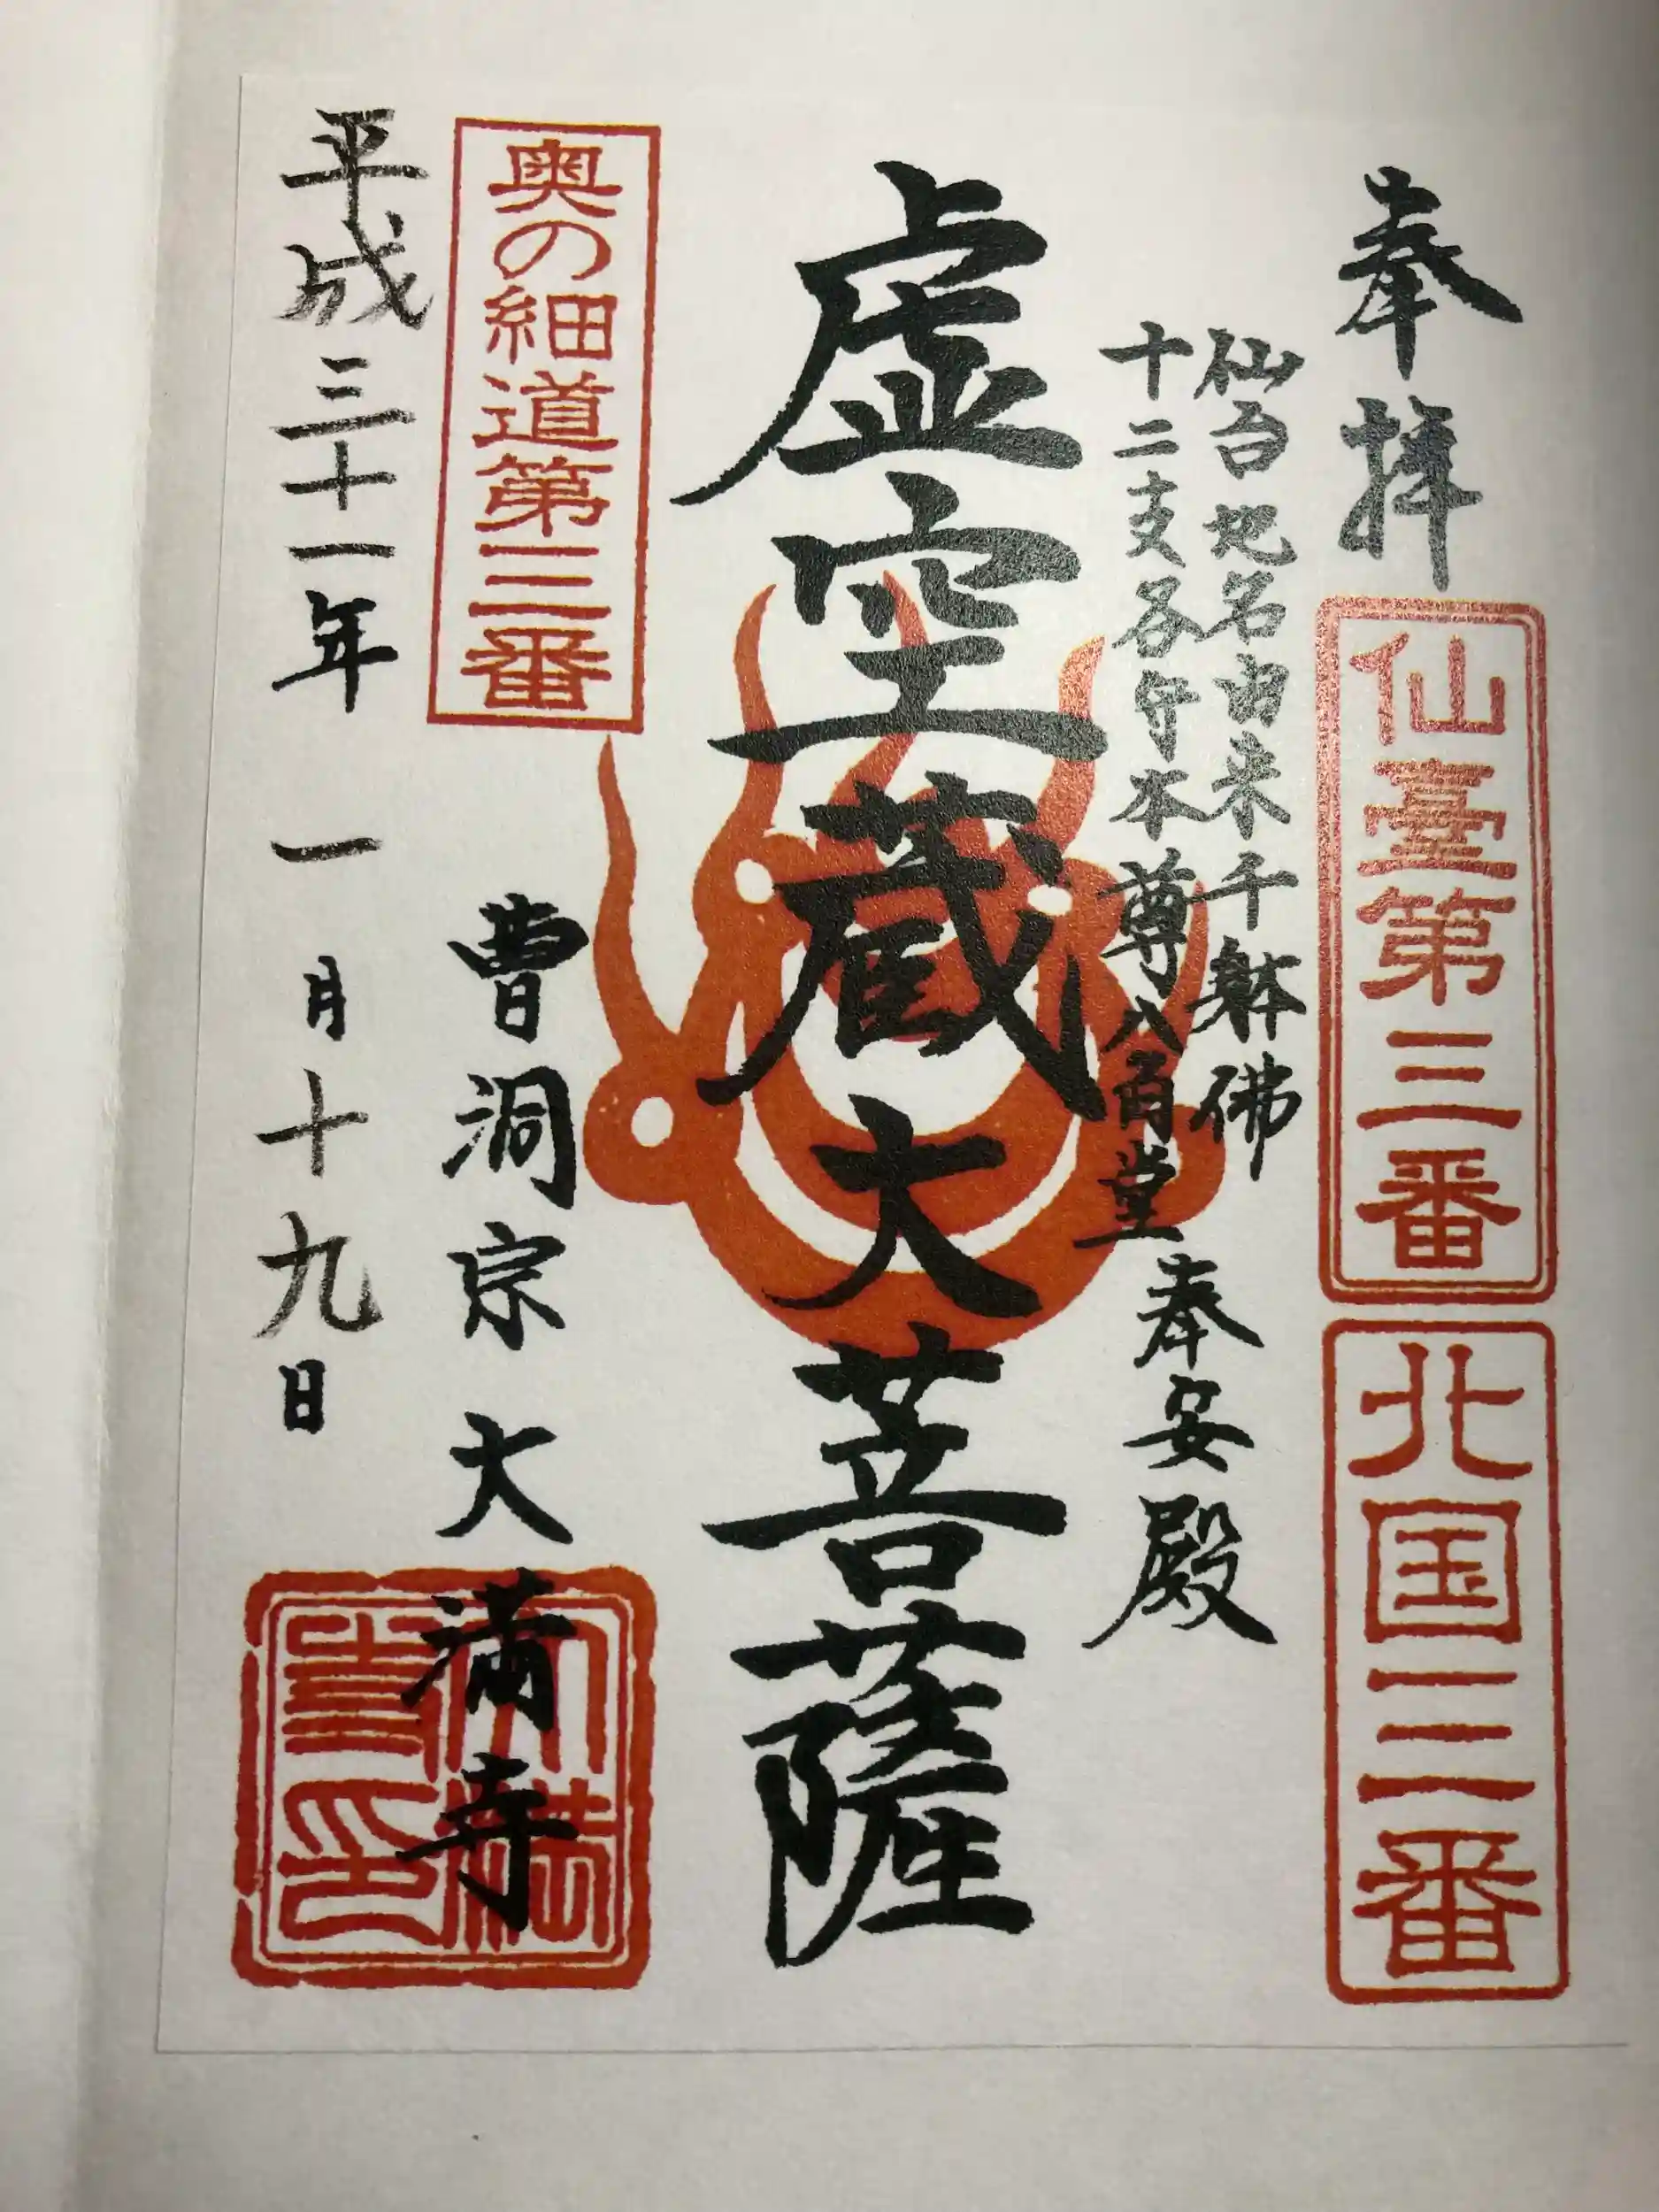 奉拝
仙臺第三番
北国三番
仙台地名由来千躰佛
十二支各守本尊八百堂
奉安殿
虚空蔵大菩薩
奥の細道第三番
曹洞宗大満寺
大満寺印
平成三十一年一月十九日